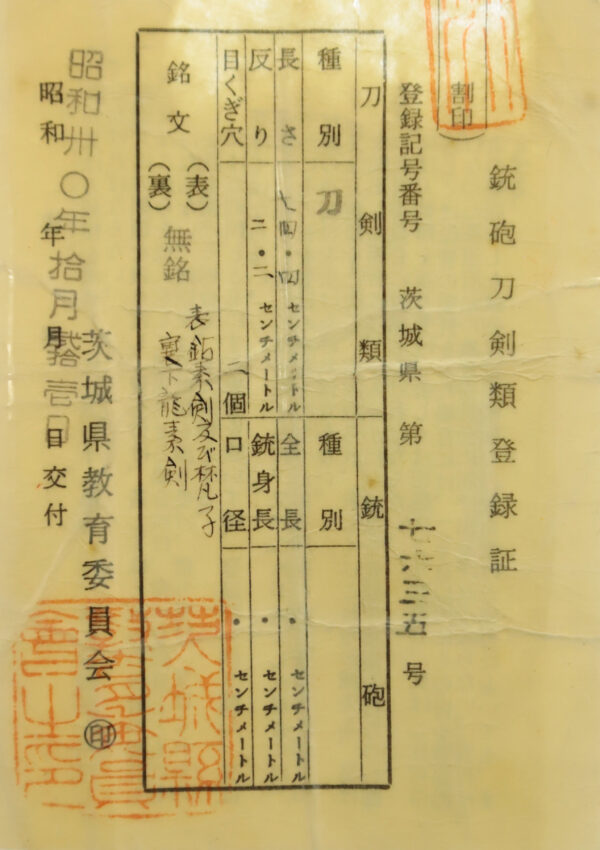 銃砲刀剣類登録証
(割印)
登録記号番号 茨城県 第 七六三五 号
刀剣類 銃砲
種別 刀 種別
長さ 七四・四 センチメートル 全長 ・ センチメートル
反り 二・二 センチメートル 銃身長 ・ センチメートル
目くぎ穴 二個 口径 ・ センチメートル
銘文 (表) 無銘
(裏)
表 鈎素剣及び梵字
裏下龍素剣
茨城県教育委員会 ㊞
昭和 年 月 日交付
昭和卅〇年拾月 拾壱日
茨城縣教育委員會之印